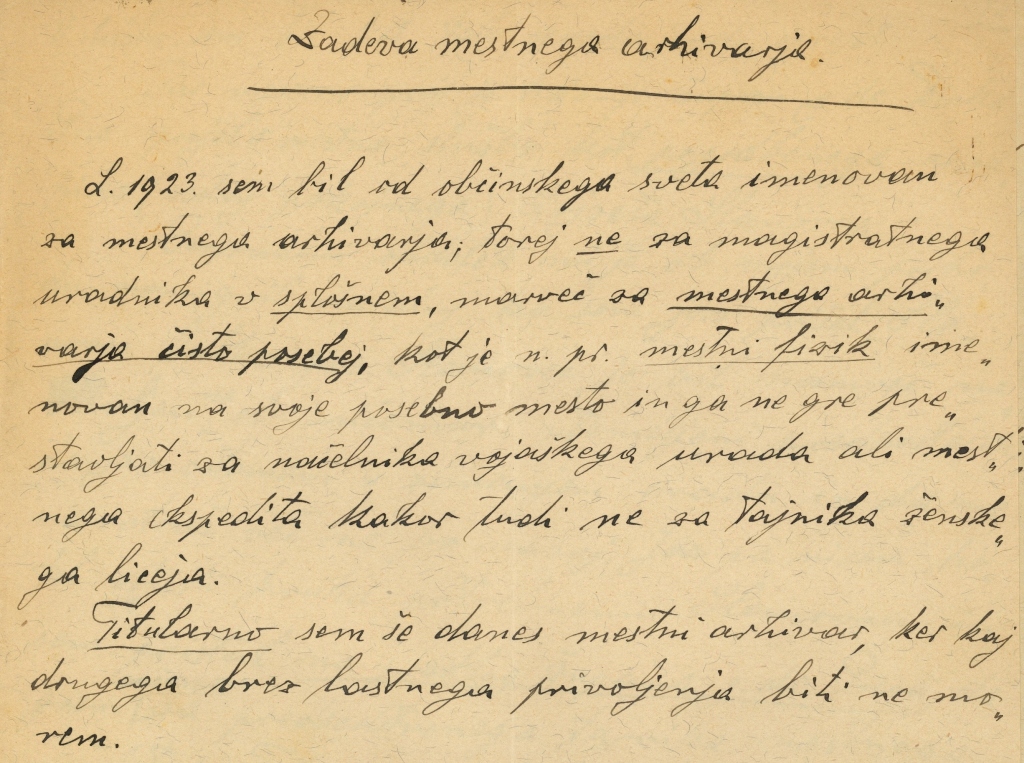 Zadeva mestnega arhivarja.
L. 1923. sem bil od občinskega sveta imenovan
za mestnega arhivarja; torej ne za magistratnega
uradnika v splošnem, marveč za mestnega arhi„
varja čisto posebej, kot je n. pr. mestni fizik ime„
novan na svoje posebno mesto in ga ne gre pre„
stavljati za načelnika vojaškega urada ali mest„
nega ekspedita kakor tudi ne za tajnika ženske„
ga liceja.
Titularno sem še danes mestni arhivar, ker kaj
drugega brez lastnega privoljenja biti ne mo„
rem.